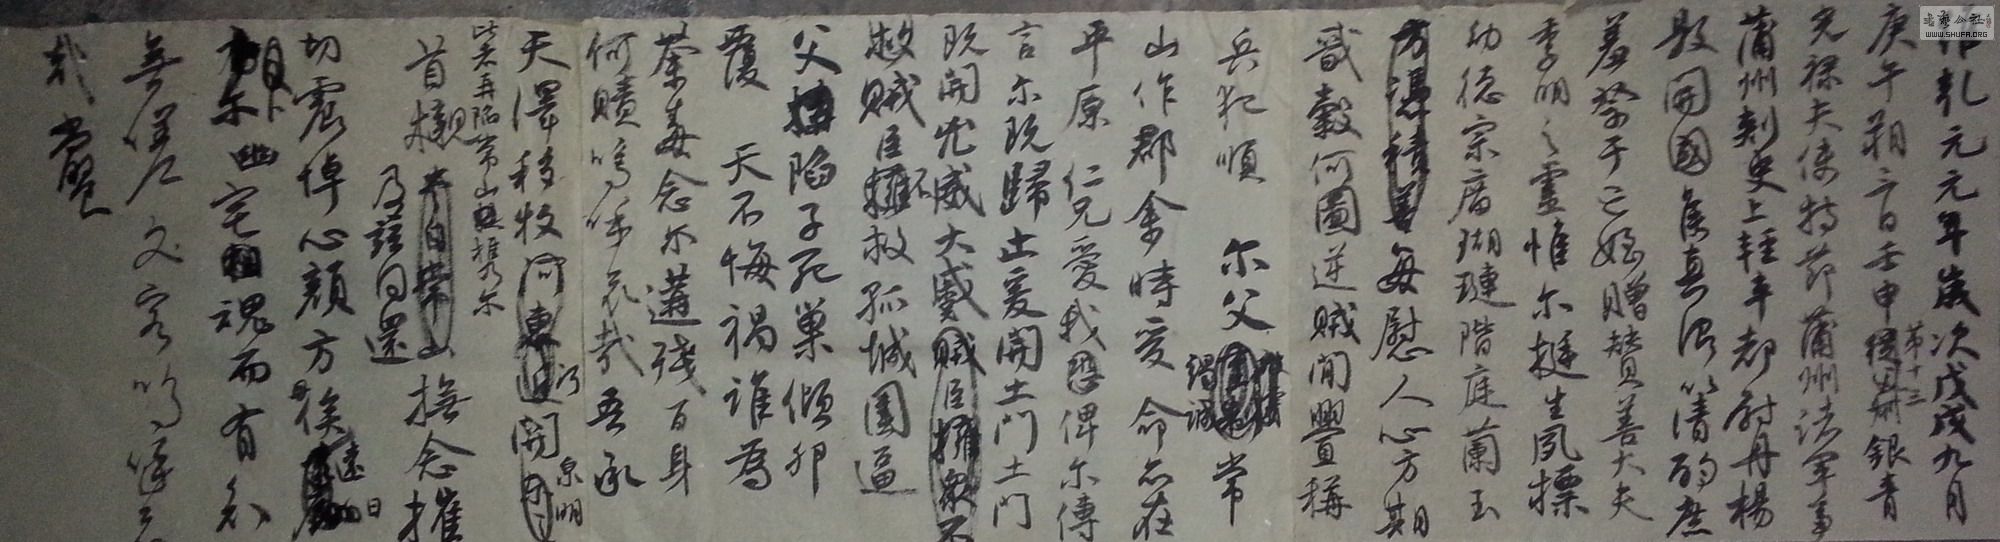 維乾元元年歲次戊戌九月
庚午朔三日壬申
第十三
銀青
光祿夫使持節蒲州諸軍事
蒲州刺史上輕車都尉丹楊
縣開國侯真卿以清酌庶
羞祭于亡姪贈贊善大夫
季明之靈惟尔挺生夙標
幼德宗廟瑚璉階庭蘭玉
方憑積善每慰人心方期
戩穀何圖逆賊間釁稱
兵犯順 尔父
竭誠
常
山作郡余時受命亦在
平原仁兄愛我俾尔傳
言尔既歸止爰開土門土門
既開兇威大蹙賊臣擁眾不
救賊臣不救孤城圍逼
父陷子死巢傾卵
覆 天不悔禍誰為
荼毒念尔遘殘百身
何贖嗚呼哀哉吾承
天澤移牧河東近
河
關
泉明
比者再陷常山攜尔
首櫬
及茲同還
撫念摧
切震悼心顏方俟
遠日
卜
尔幽宅魂而有知
無嗟久客嗚呼哀
哉尚饗
書藝公社
WWW.SHUFA.ORG